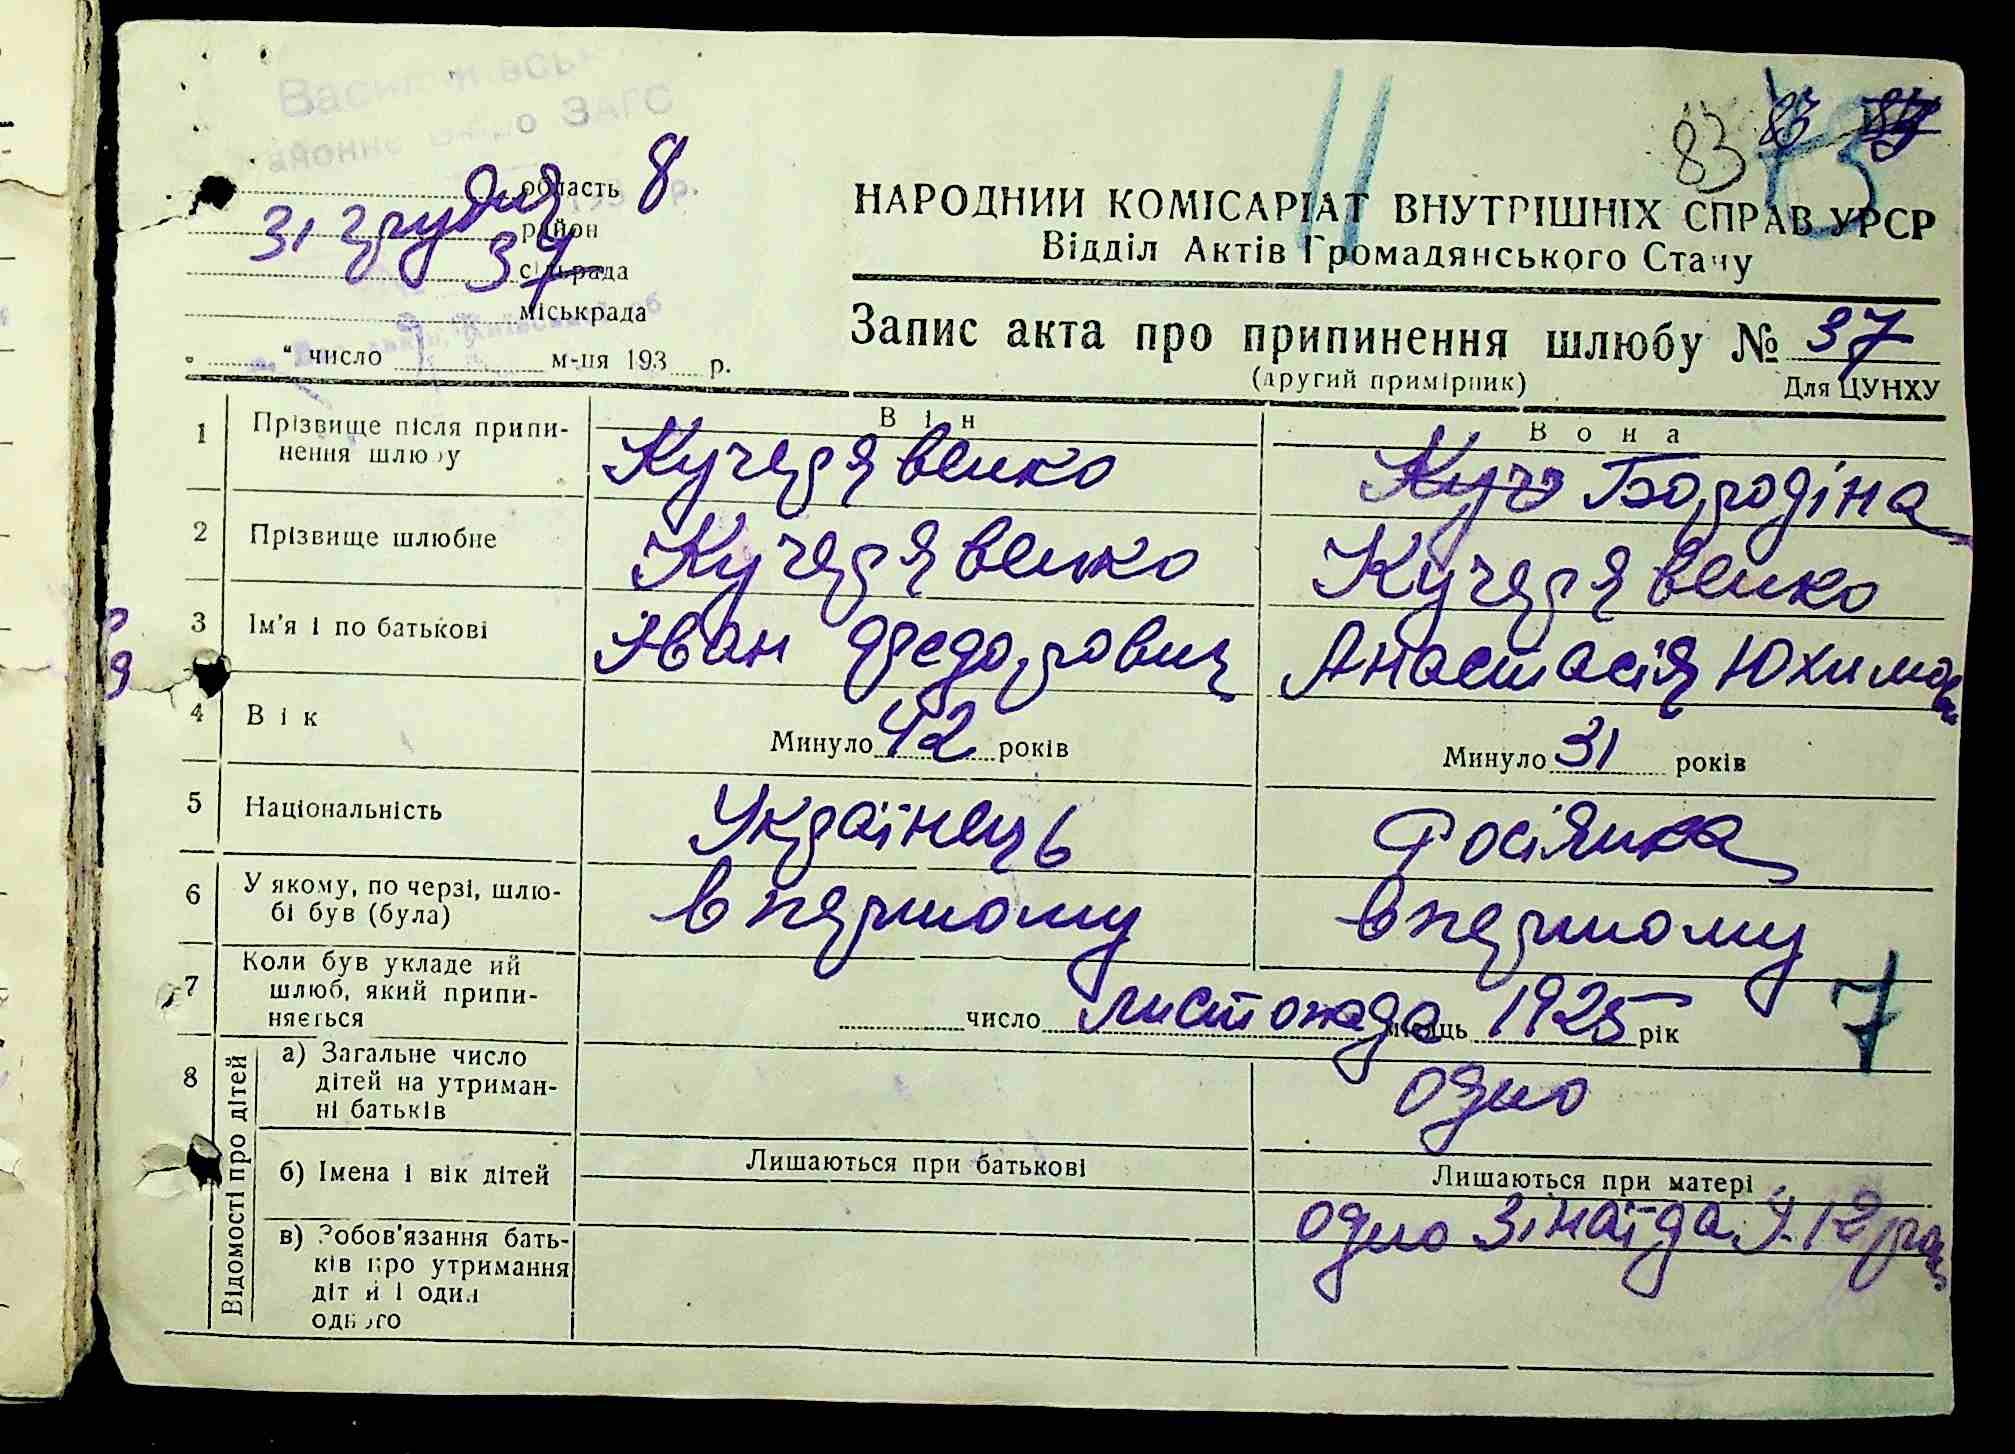 ЗАГС
31 грудня 8
37
область
район
сільрада
міськрада
" число м-ця 193 р.
83 83
13
НАРОДНИЙ КОМІСАРІАТ ВНУТРІШНІХ СПРАВ УРСР
Відділ Актів Громадянського Стану
Запис акта про припинення шлюбу № 37
(другий примірник)
Для ЦУНХУ
Він
Вона
1 Прізвище після припи-
нення шлюбу
Кучерявенко
Куче Бородіна
2 Прізвище шлюбне
Кучерявенко
Кучерявенко
3 Ім'я і по батькові
Іван Федорович
Анастасія Юхимов
4 Вік
Минуло 42 років
Минуло 31 років
5 Національність
Українець
Росіянка
6 У якому, по черзі, шлю-
бі був (була)
в першому
в першому
7 Коли був укладений
шлюб, який припи-
няється
число листопада місяць 1925 рік
7
8 Відомості про дітей
а) Загальне число
дітей на утриман-
ні батьків
одно
б) Імена і вік дітей
Лишаються при батькові
Лишаються при матері
одно Зінаїда І. 12 рок
в) Зобов'язання бать-
ків про утримання
дітей і один
одного